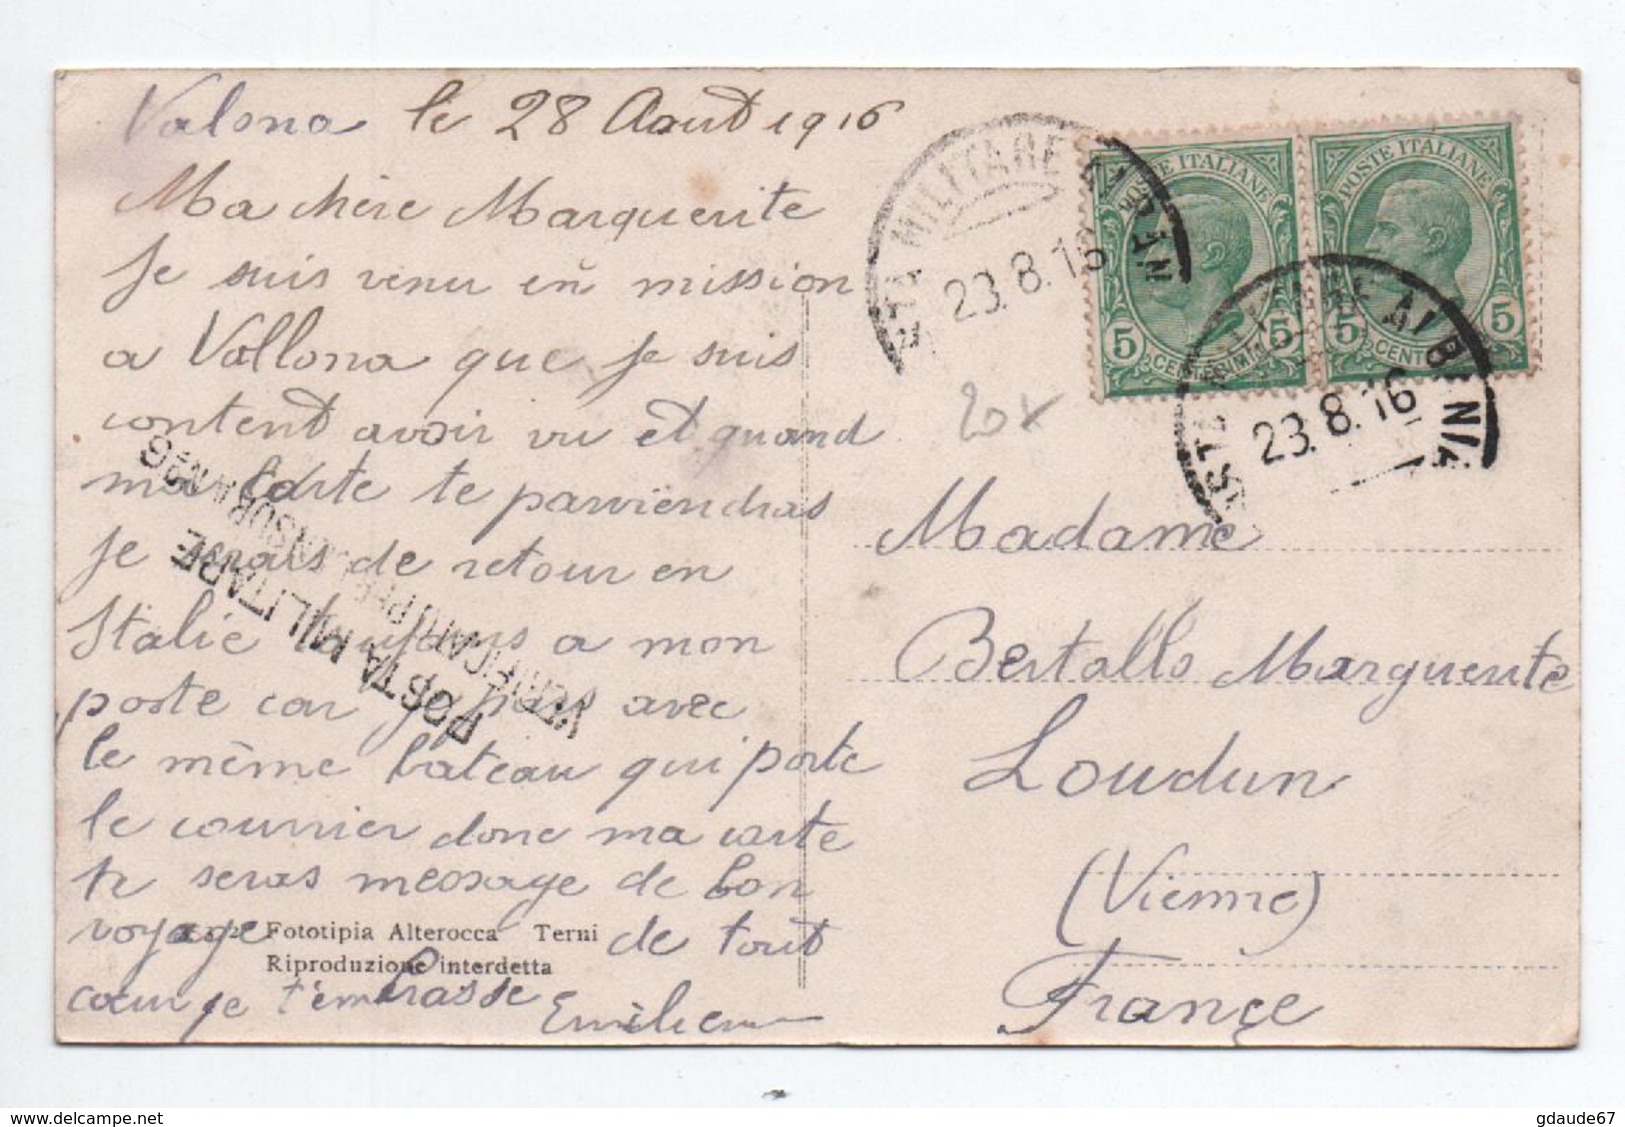 Valona le 28 Aout 1916
Ma chère Marguerite
Je suis venu en mission
a Vallona que je suis
content avoir vu et quand
ma carte te parviendras
je serais de retour en
Italie toujours a mon
poste car je pars avec
le même bateau qui porte
le courrier donc ma carte
te seras message de bon
voyage de tout
cœur je t'embrasse
Emilienne
Fototipia Alterocca Terni
Riproduzione interdetta
POSTA MILITARE
VERIFICATO PER CENSURA N 26
POSTA MILITARE ALBANIA
23.8.16
POSTE ITALIANE
5 CENTESIMI 5
POSTE ITALIANE
5 CENT 5
POSTA MILITARE ALBANIA
23.8.16
Madame
Bertallo Marguerite
Loudun
(Vienne)
France
delcampe.net
gdaude67